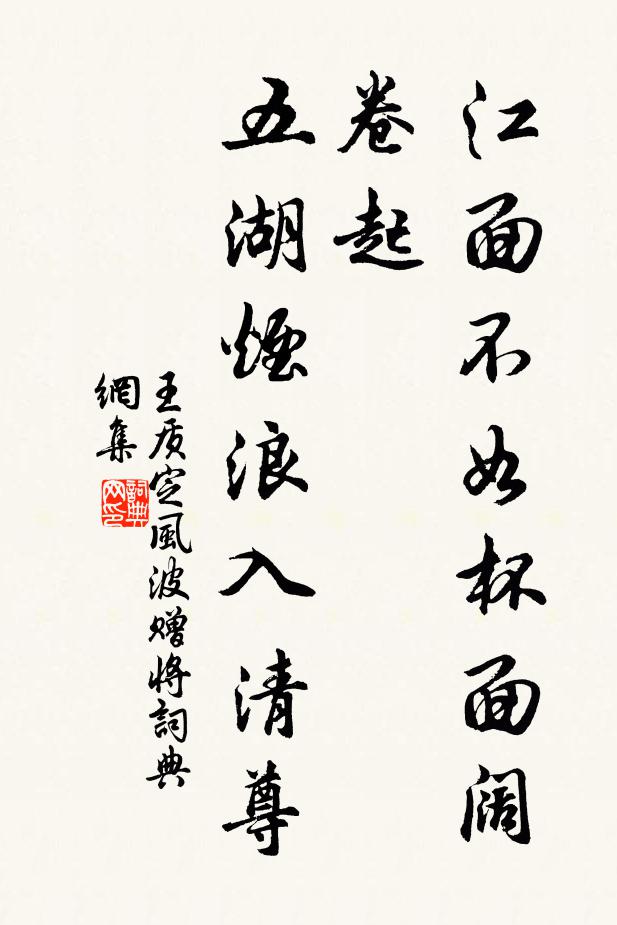 江面不如杯面阔
卷起
五湖煙浪入清尊
王质定風波赠将詞典
網集
詞典
网印